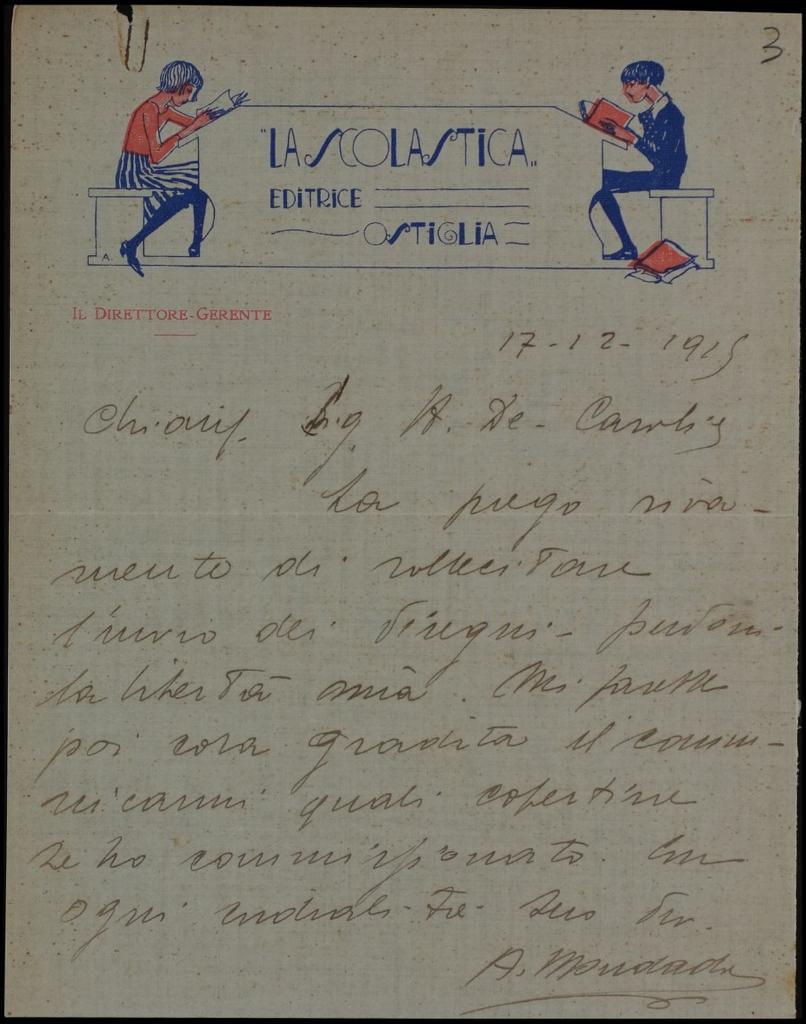 3
"LA SCOLASTICA"
EDITRICE
OSTIGLIA
A
IL DIRETTORE-GERENTE
17-12-1915
Chiariss. Sig. A. De-Carolis
La prego viva-
mente di sollecitare
l'invio dei disegni - perdoni
la libertà mia. Mi farebbe
poi cosa gradita il comu-
nicarmi quali copertine
Le ho commissionato. Con
ogni Suo
A. Mondadori